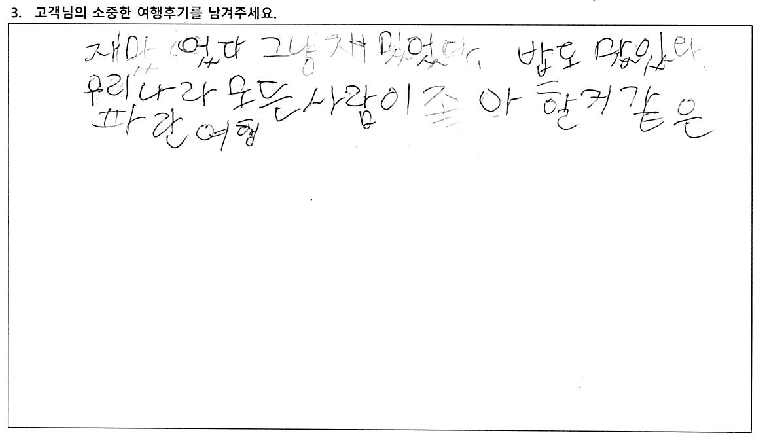 3. 고객님의 소중한 여행후기를 남겨주세요.
재밌었다 그냥 재밌었다. 밥도 맛있다.
우리나라 모든 사람이 좋아 할거 같은
파란여행